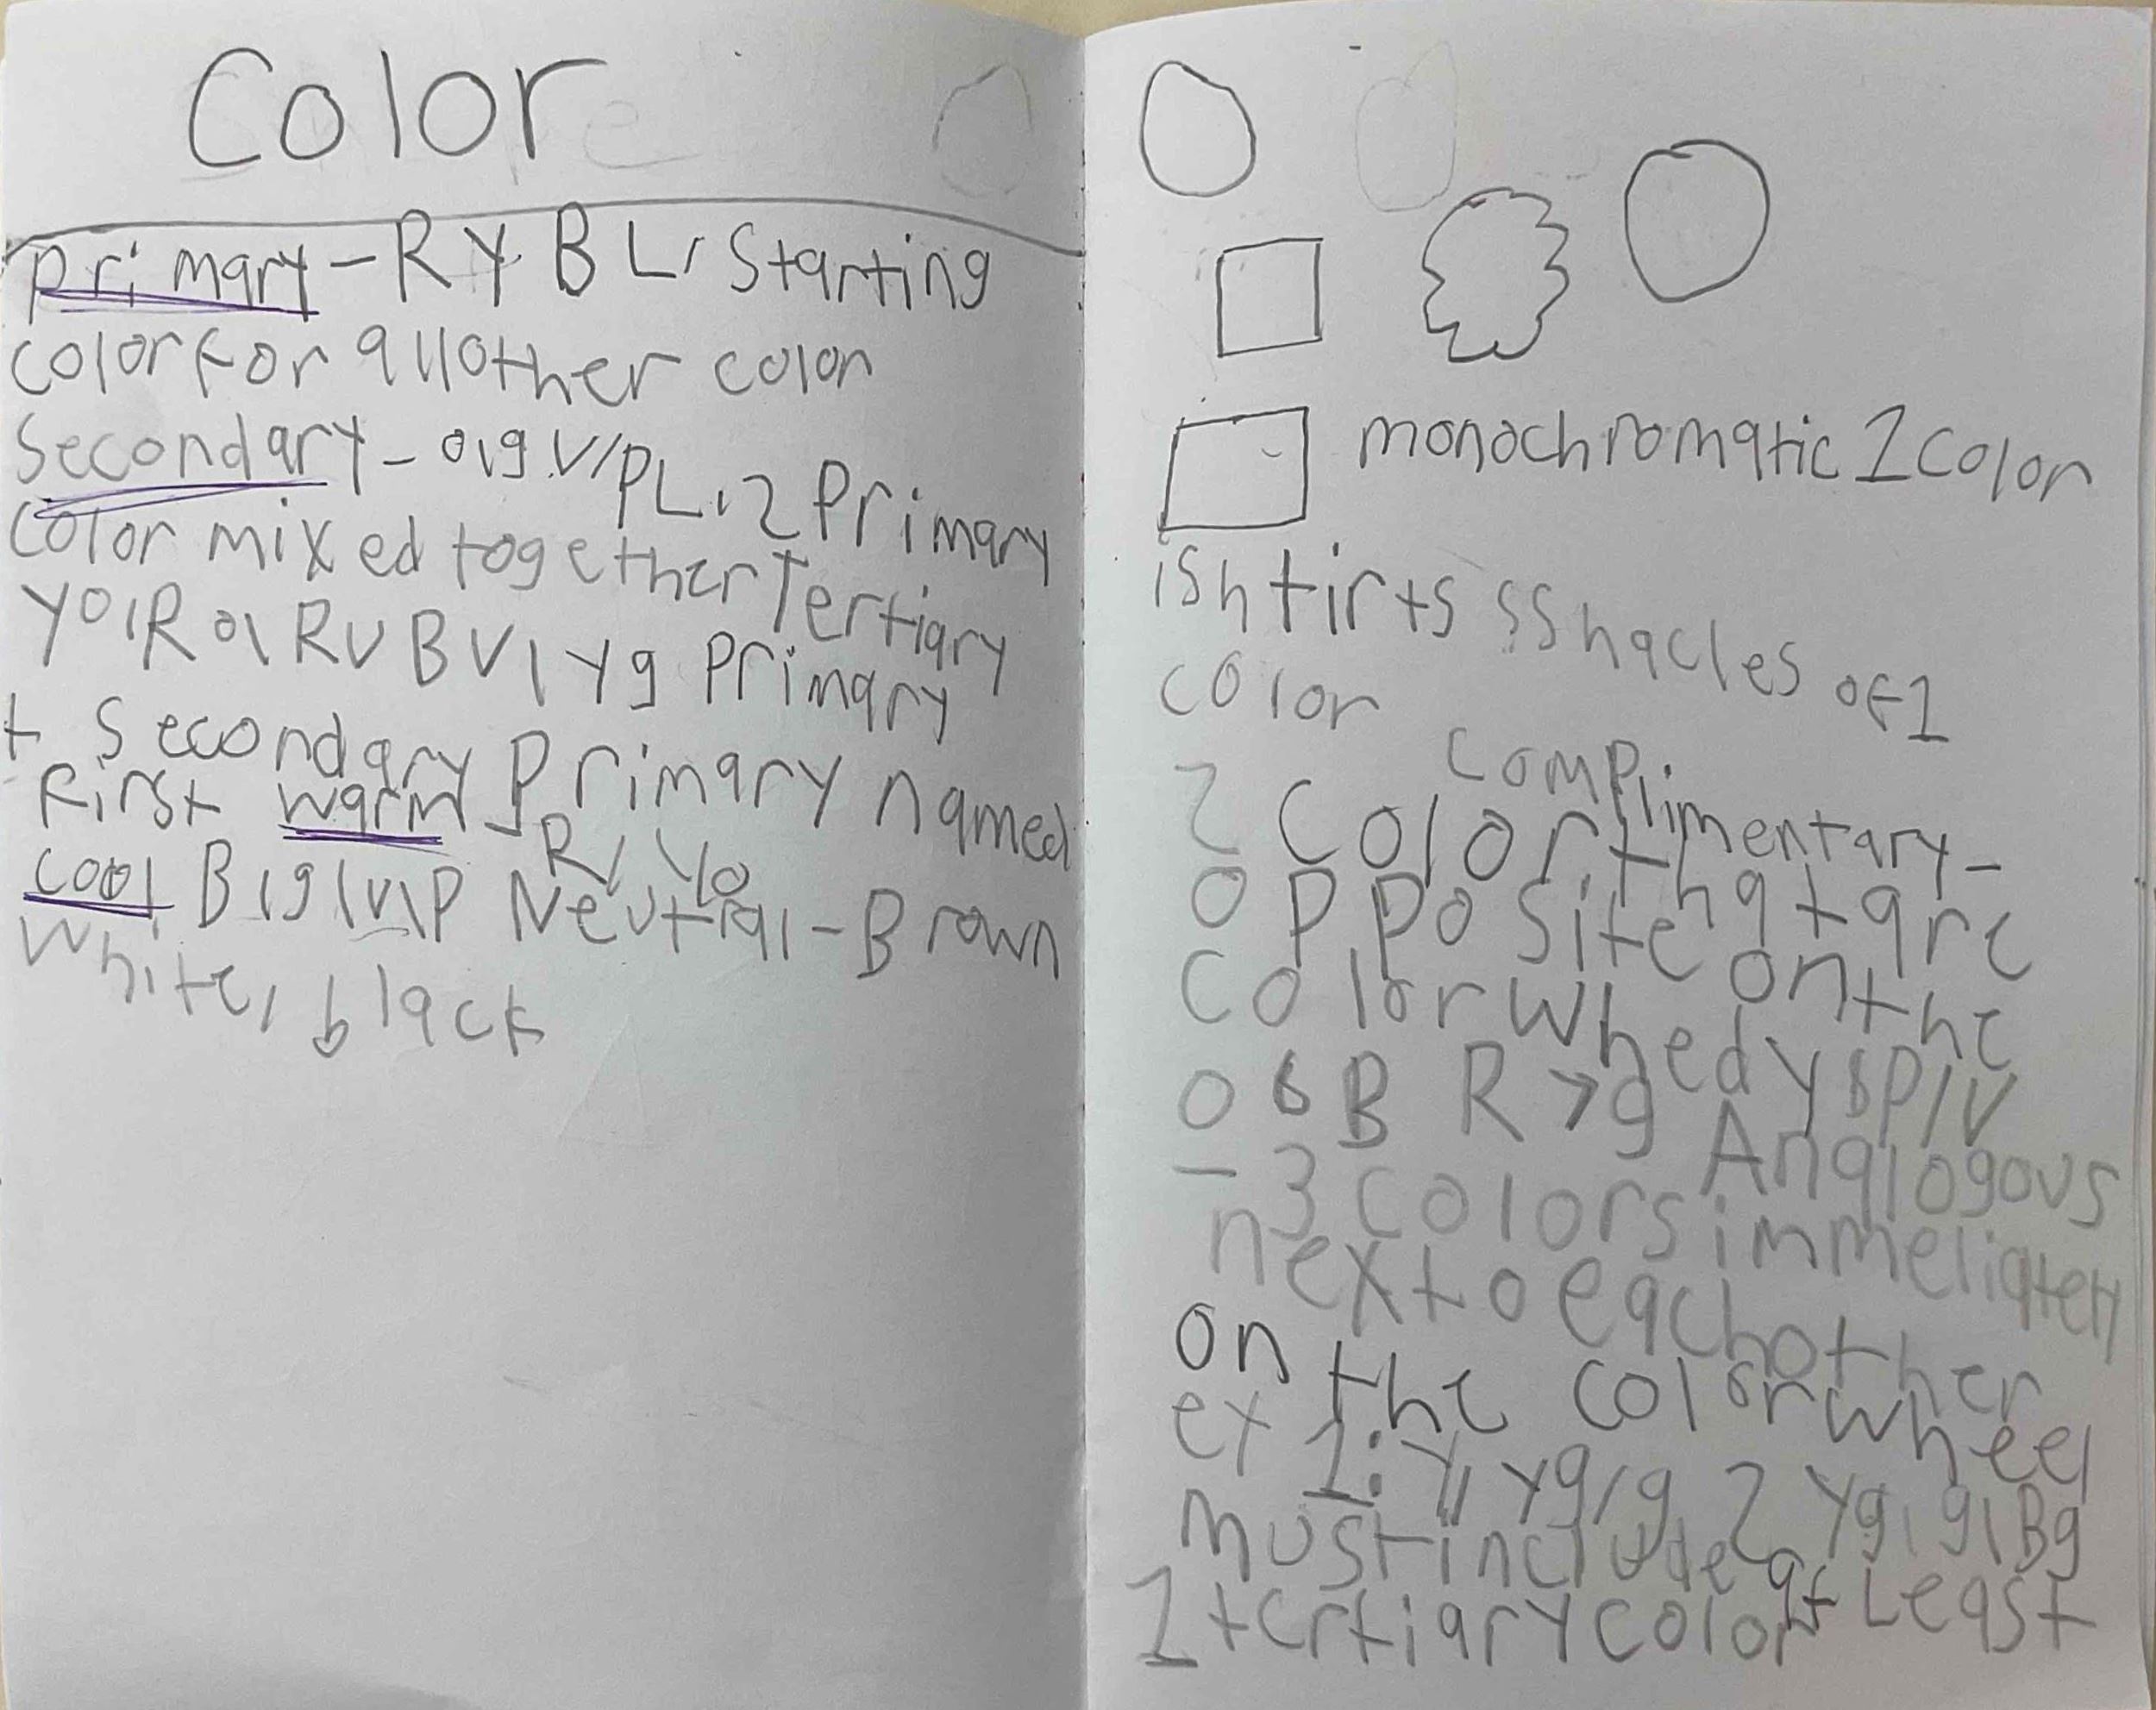 Color
Primary - R Y B L, Starting
color for all other color
Secondary - o, g. V/PL, 2 Primary
color mixed together Tertiary
YO, RO, RV BV, Yg Primary
+ Secondary Primary named
first warm - R, Yo
cool B, g, V, P Neutral - Brown
white, black
monochromatic 1 color
ish tirts shacles of 1
color
complimentary -
2 color that are
opposite on the
color wheel Y & P/V
O & B R > g Analogous
- 3 colors immeliately
next to each other
on the color wheel
ex 1: Y, Yg, g 2 Yg, g, Bg
must include at Least
1 tertiary color